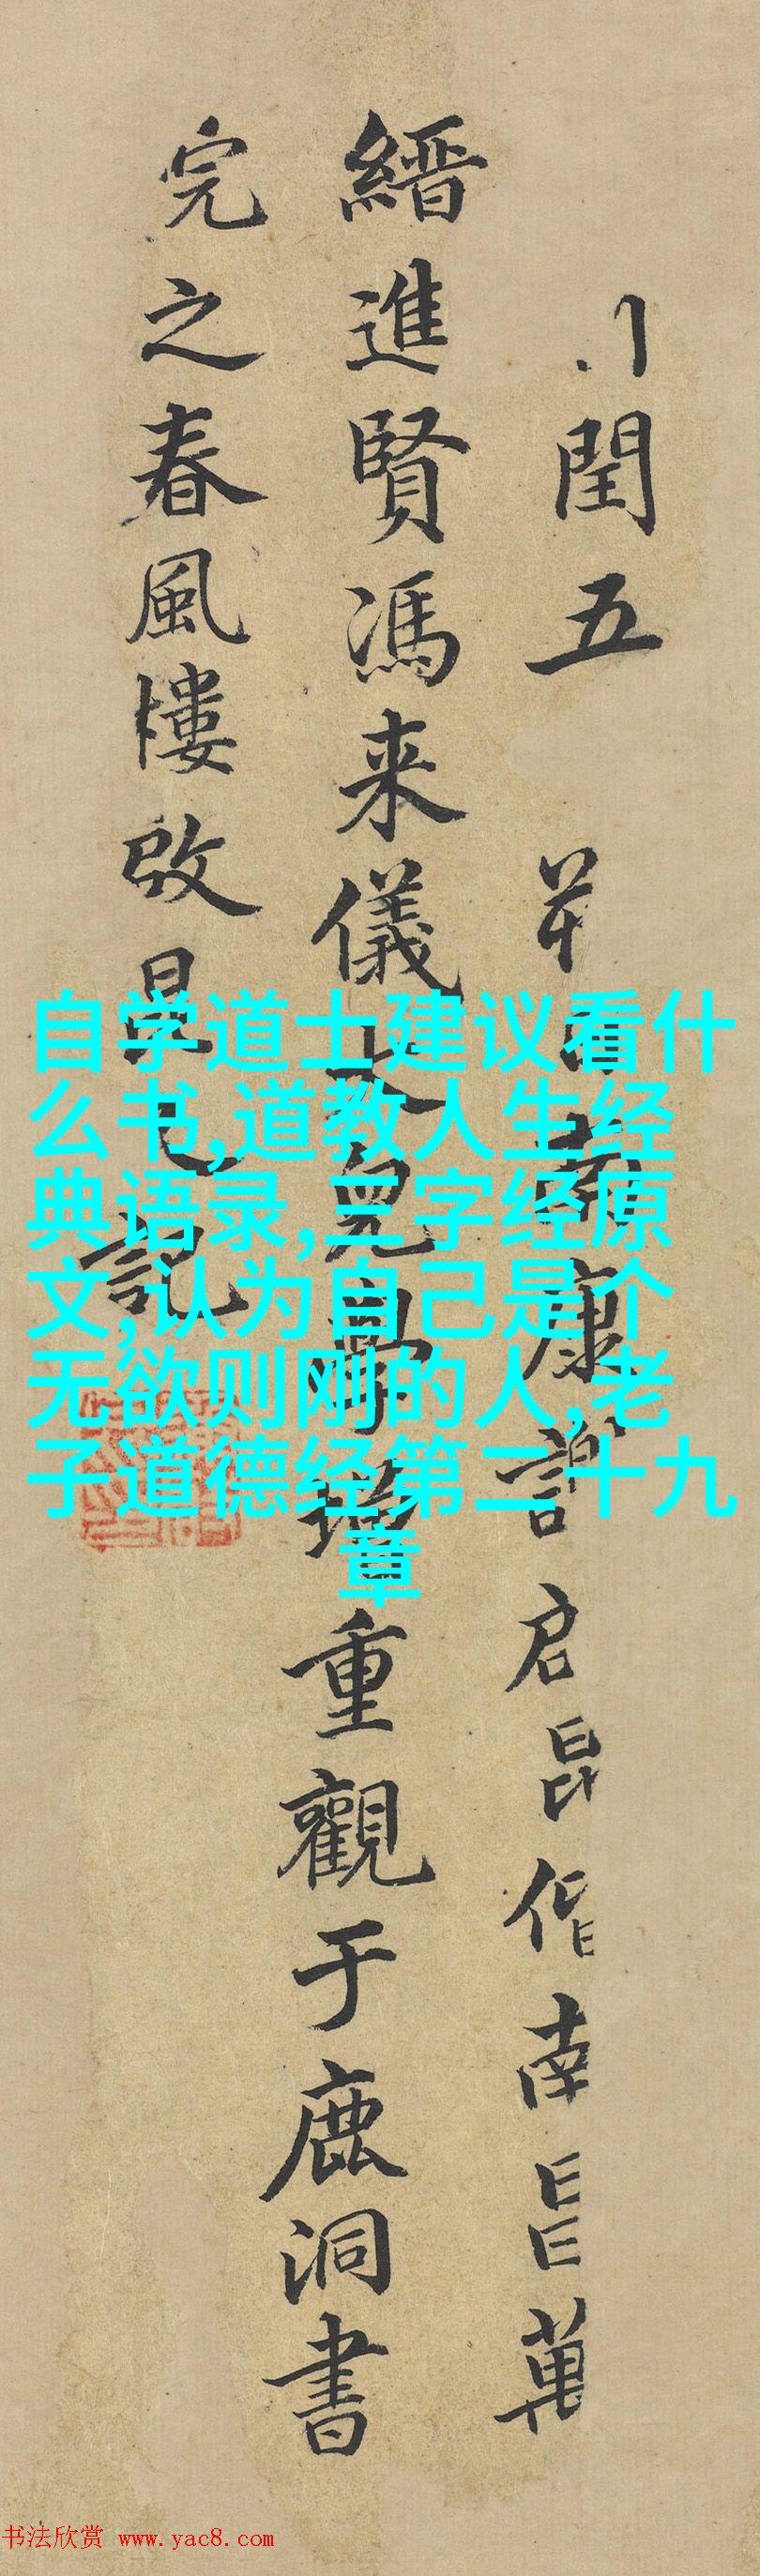 閏五 南康謝君昌偕南昌萬
縉進賢馮来儀 重觀于鹿洞書
完之春風樓啟昆之記
自学道士建议看什
么书,道教人生经
典语录,三字经原
文,认为自己是个
无欲则刚的人,老
子道德经第二十九
章
书法欣赏 www.yac8.com